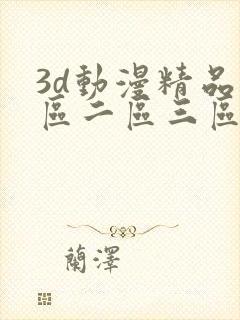 3d動漫精品
區二區三區
蘭澤